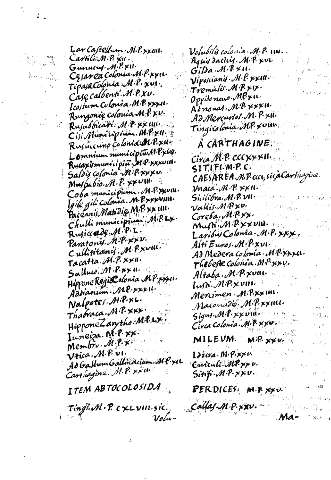 Lar Castellum. M.P. XXIII.
Cartili. M.P. XII.
Gunucus. M.P. XII.
Cæsarea Colonia. M.P. XXII.
Tipasa Colonia. M.P. XVI.
Case Calbenti. M.P. XV.
Icosium Colonia. M.P. XXXII.
Rusguniæ colonia. M.P. XV.
Rusubbicari. M.P. XXIIII.
Cisi Municipium. M.P. XII.
Rusuccuro Colonia. M.P. XII.
Iomnium municipium. M.P.
municipium. M.P. XXXVIII.
Saldis colonia. M.P. XXXV.
Muslubio. M.P. XXVIII.
Coba municipium. M.P. XXVIII.
Igilgili colonia. M.P. XXXVIII.
M.P. XXIIII.
Chulli municipium. M.P. LX.
M.P. L.
Paratianis. M.P. XXV.
Cullitani M.P. XVIII.
Tacatua M.P. XXII.
Sulluco M.P. XXII.
Hippone Regio Colonia M.P. XXXII.
M.P. XXXXII.
Nalpotes. M.P. XL.
Thabraca. M.P. XXX.
Hippone Zaryto. M.P. LX.
Tuneiza. M.P. XX.
Membro. M.P. X.
Vtica. M.P. VI.
Ad Gallum Gallinacium. M.P. XII.
Cartagine. M.P. XV.
ITEM AB TOCOLOSIDA
Tingi. M.P. CXLVIII. sic.
Volu-
Volubile colonia. M.P. IIII.
Aquis Dacicis. M.P. XVI.
Gilda. M.P. XII.
Viposcianis. M.P. XXIII.
Tremulis. M.P. XIX.
Oppidonouo. M.P. XII.
Ad Mercurios. M.P. XII.
Tingi colonia. M.P. XVIII.
A CARTHAGINE.
Cirta. M.P. CCCXXXII.
SITIFI. M.P. C.
CAESAREA. M.P. CCC, sic a Carthagine.
Vnuca. M.P. XXII.
Sicilibra. M.P. VII.
Vallis. M.P. XV.
Coreba. M.P. XX.
Musti. M.P. XXVIII.
Laribus Colonia. M.P. XXX.
Alti Buros. M.P. XVI.
Ad Medera colonia. M.P. XXXII.
Altaba. M.P. XVIII.
M.P. XVIII.
M.P. XXIIII.
M.P. XXIIII.
Sigus. M.P. XXVIII.
Cirta Colonia. M.P. XXV.
MILEUM. M.P. XXV.
Idicra. M.P. XXV.
Cuiculi. M.P. XXV.
Sitifi. M.P. XXV.
PERDICES. M.P. XXV.
Cellas. M.P. XXV.
Ma-